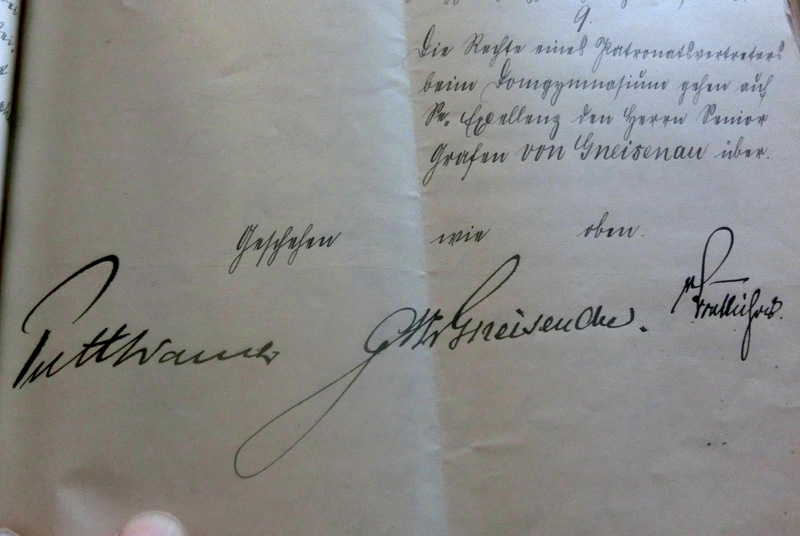 9.
Die Rechte eines Patronatsvertreters
beim Domgymnasium gehen auf
Se. Exzellenz den Herrn Senior
Grafen von Gneisenau über.
Geschehen wie oben.
Puttkamer Gneisenau.